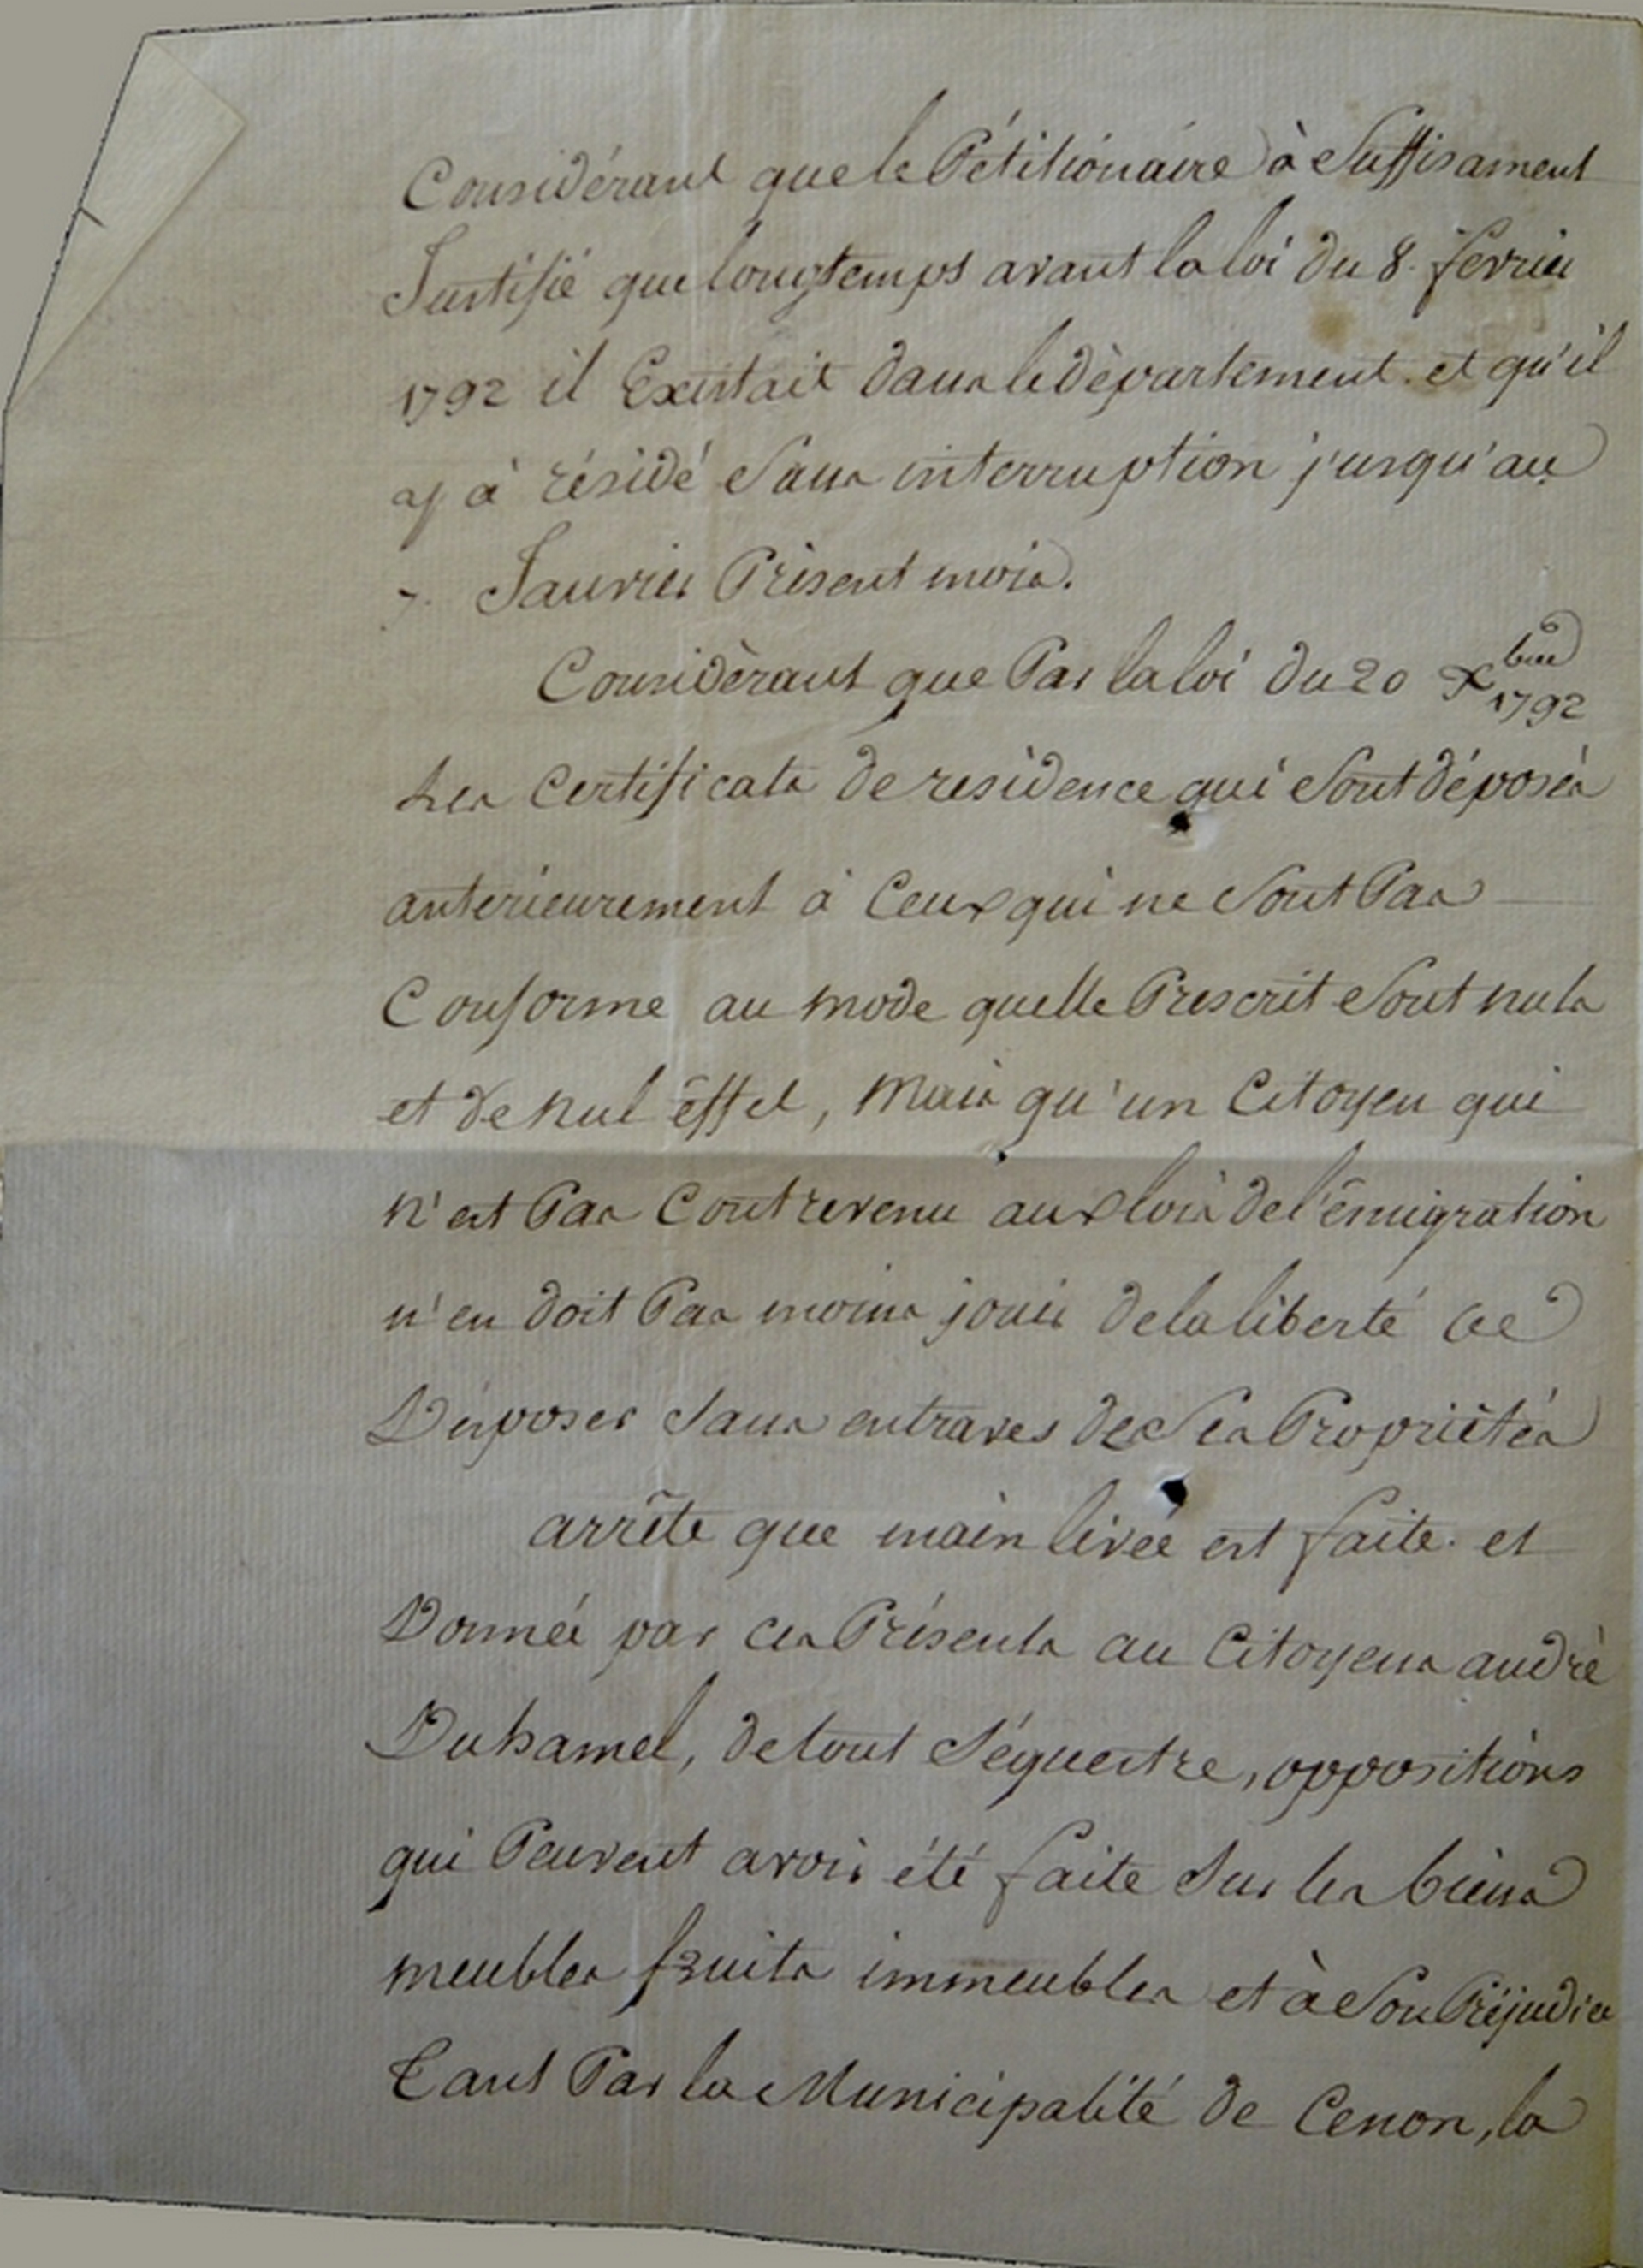 Considérant que le Pétitionaire à Suffisament
Justifié que longtemps avant la loi du 8. fevrier
1792 il Existait dans le département. et qu'il
ay à résidé Sans interruption jusqu'au
7. Janvier Présent mois.
Considèrant que Par la loi du 20 Xbre 1792
Les Certificats de residence qui Sont déposés
anterieurement à Ceux qui ne Sont Pas
Conforme au mode quelle Prescrit Sont nuls
et de nul êffet, Mais qu'un Citoyen qui
n'est Pas Contrevenu aux lois de l'émigration
n'en doit Pas moins jouir de la liberté de
Disposer Sans entraves de Ses Propriétés
arrête que main livée est faite. et
Donnée par ces Présents au Citoyens andré
Duhamel, de tout Séquestre, oppositions
qui Peuvent avoir été faite Sur les biens
meubles fruits immeubles et à Son Préjudice
Tant Par la Municipalité de Cenon, la